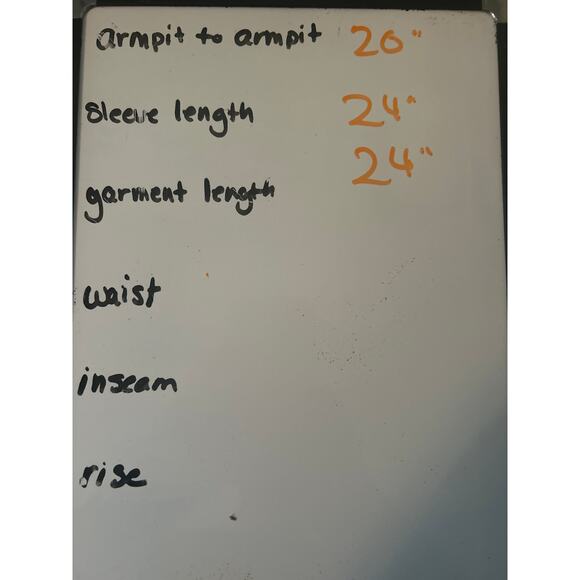 armpit to armpit 20"
sleeve length 24"
garment length 24"
waist
inseam
rise